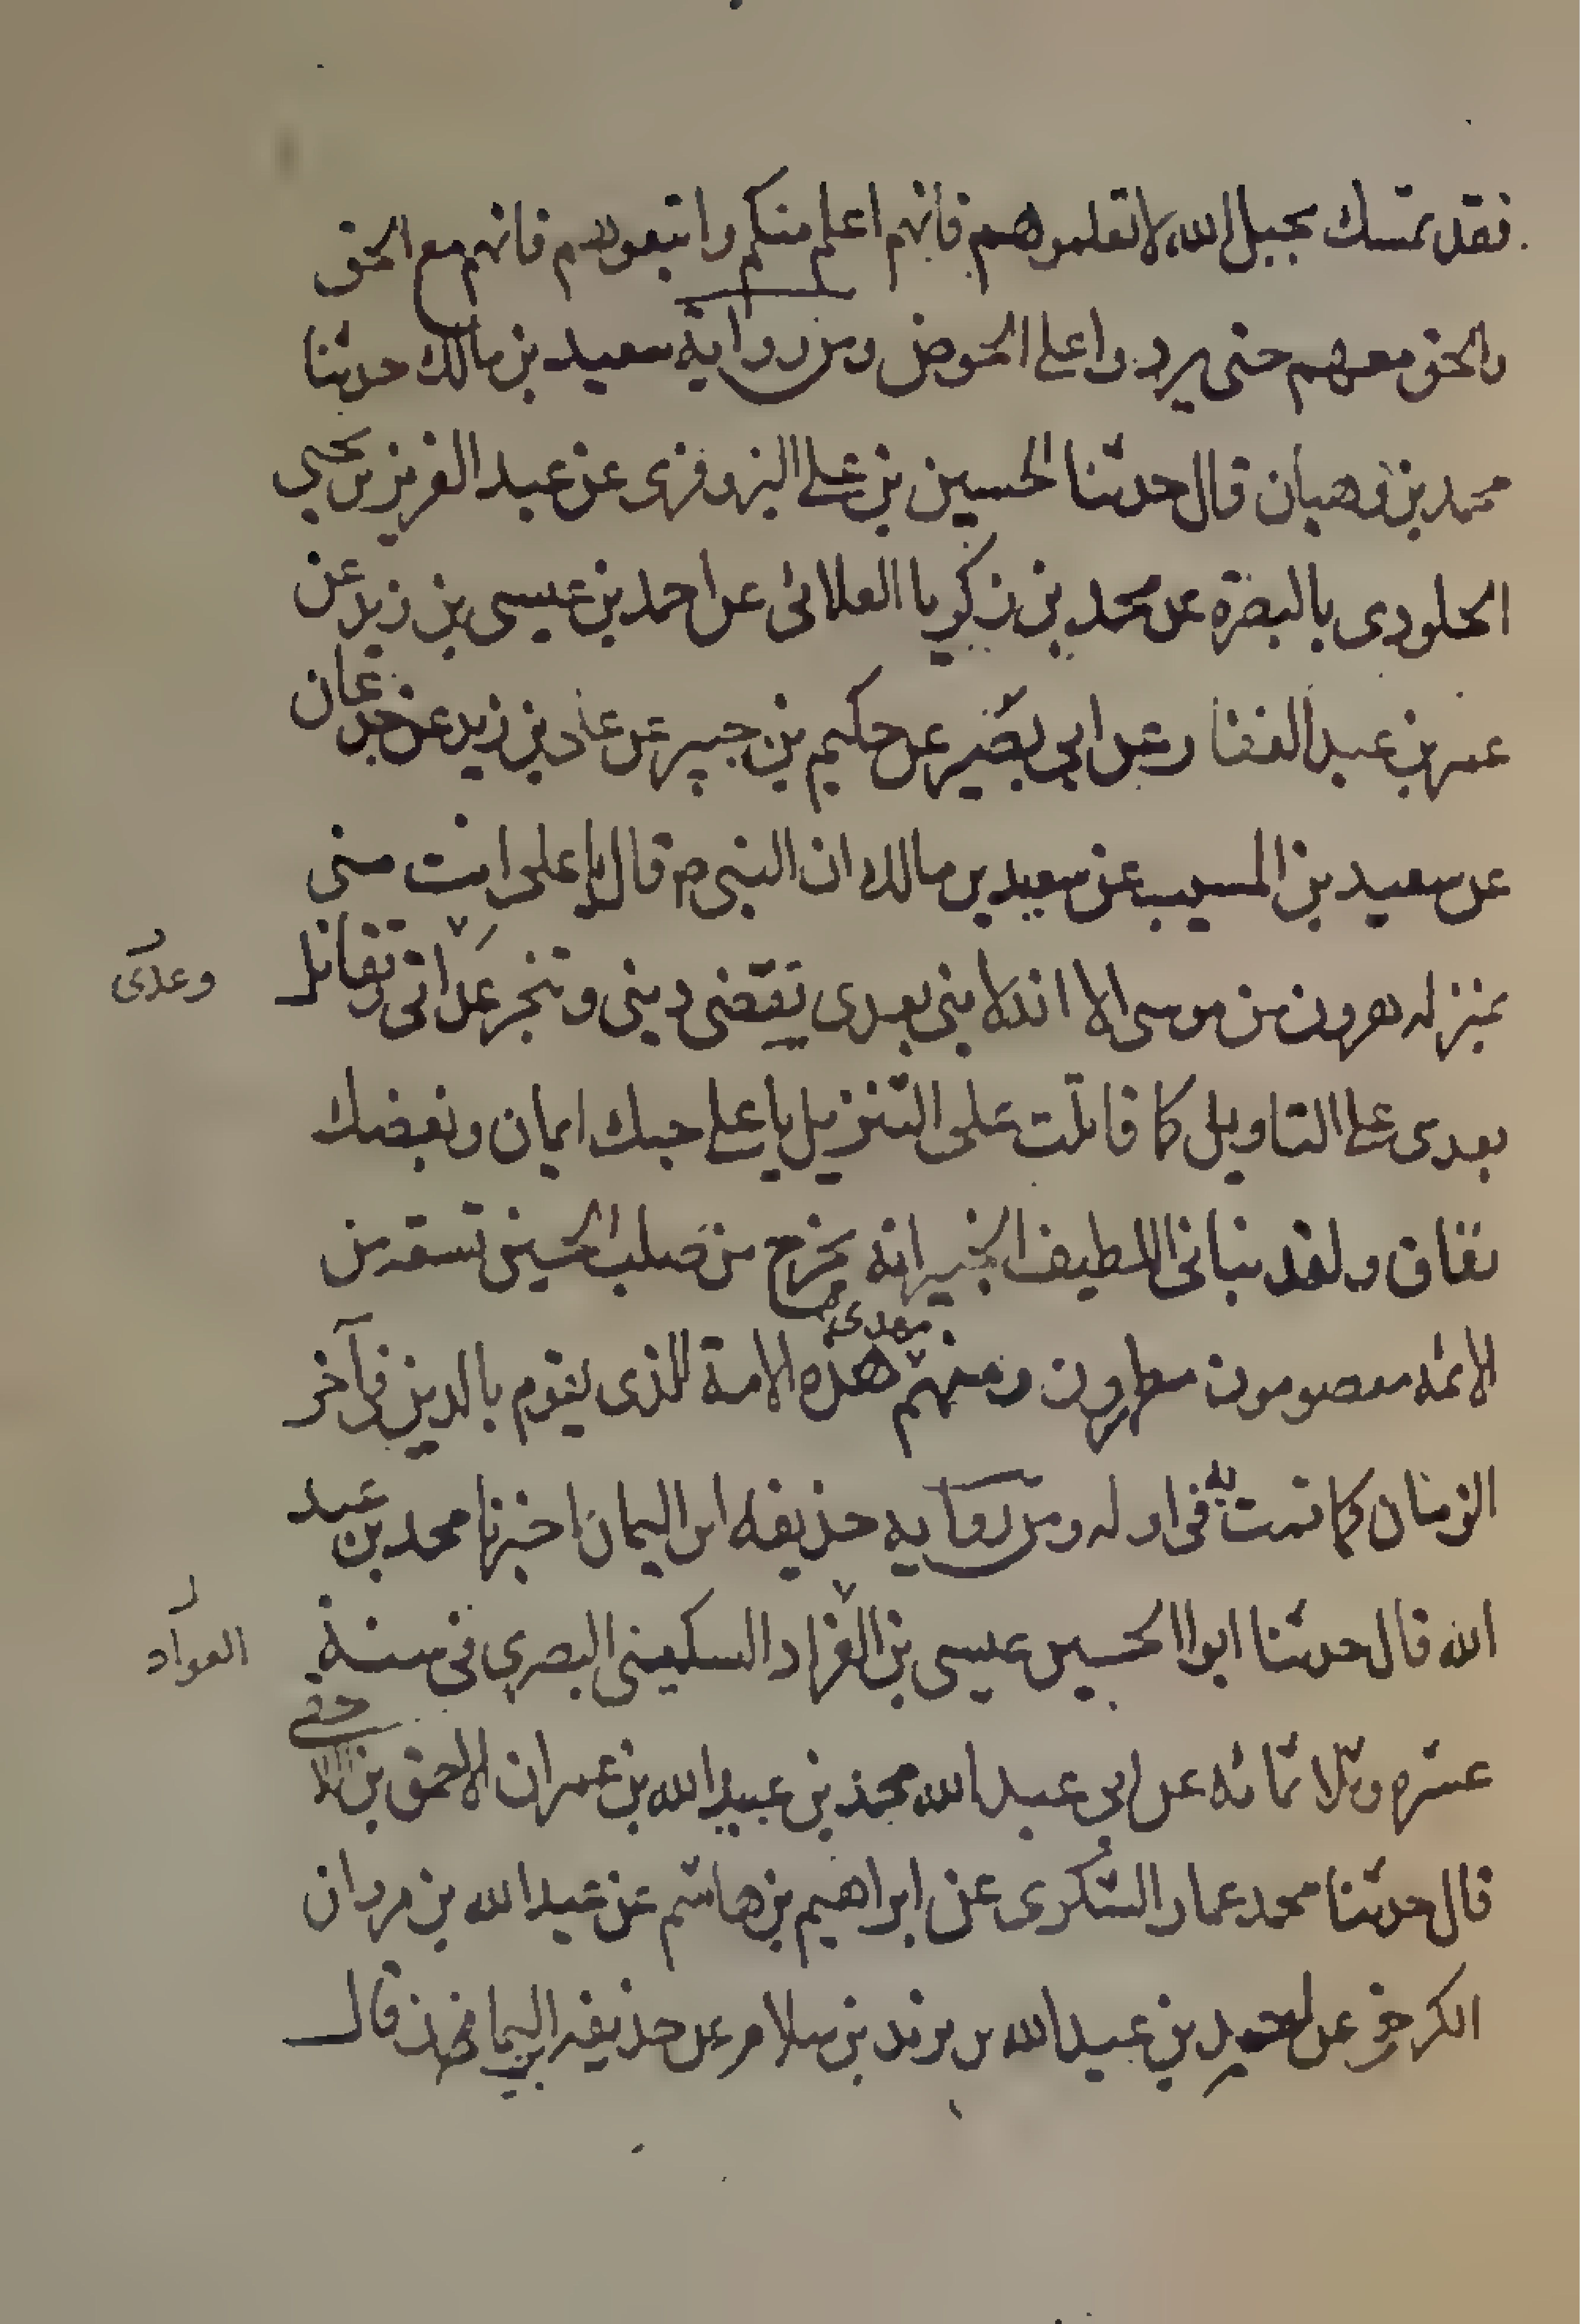 فقد تمسك بحبل الله لا تعلموهم فانهم اعلم منكم واتبعوهم فانهم مع الحق
والحق معهم حتى يردوا على الحوض ومن رواية سعيد بن مالك حدثنا
محمد بن وهبان قال حدثنا الحسين بن على البزوفرى عن عبد العزيز بن يحيى
الجلودى بالبصرة عن محمد بن زكريا الغلابى عن احمد بن عيسى بن زيد عن
عمر بن عبد الغفار عن ابى بصير عن حكيم بن جبير عن على بن زيد عن جدعان
عن سعيد بن المسيب عن سعيد بن مالك ان النبى ص قال يا على انت منى
بمنزله هرون من موسى الا انه لا نبى بعدى تقضى دينى وتنجز عداتى وتقاتل
وعدى
بعدى على التاويل كما قاتلت على التنزيل يا على حبك ايمان وبغضك
نفاق ولقد نبانى اللطيف الخبير انه يخرج من صلب الحسين تسعه من
الائمه معصومون مطهرون ومنهم مهدى هذه الامة الذى يقوم بالدين فى آخر
الزمان كما قمت به فى اوله ومن رواية حذيفه ابن اليمان اخبرنا محمد بن عبد
الله قال حدثنا ابوا الحسين عيسى بن العراد السكينى البصرى فى سنة
العواد
عشره وثلاثمائه عن ابى عبد الله محمد بن عبيد الله بن عمران الاحمق بن
قال حدثنا محمد عمار السكرى عن ابراهيم بن هاشم عن عبد الله بن مروان
الكرخى عن بن عبيد الله بن يزيد بن سلام عن حذيفه اليمان قال